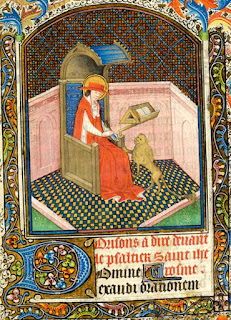 Orisons a dire deuant
le psaltier saint ihe
Domine rosme
exaudi orationem